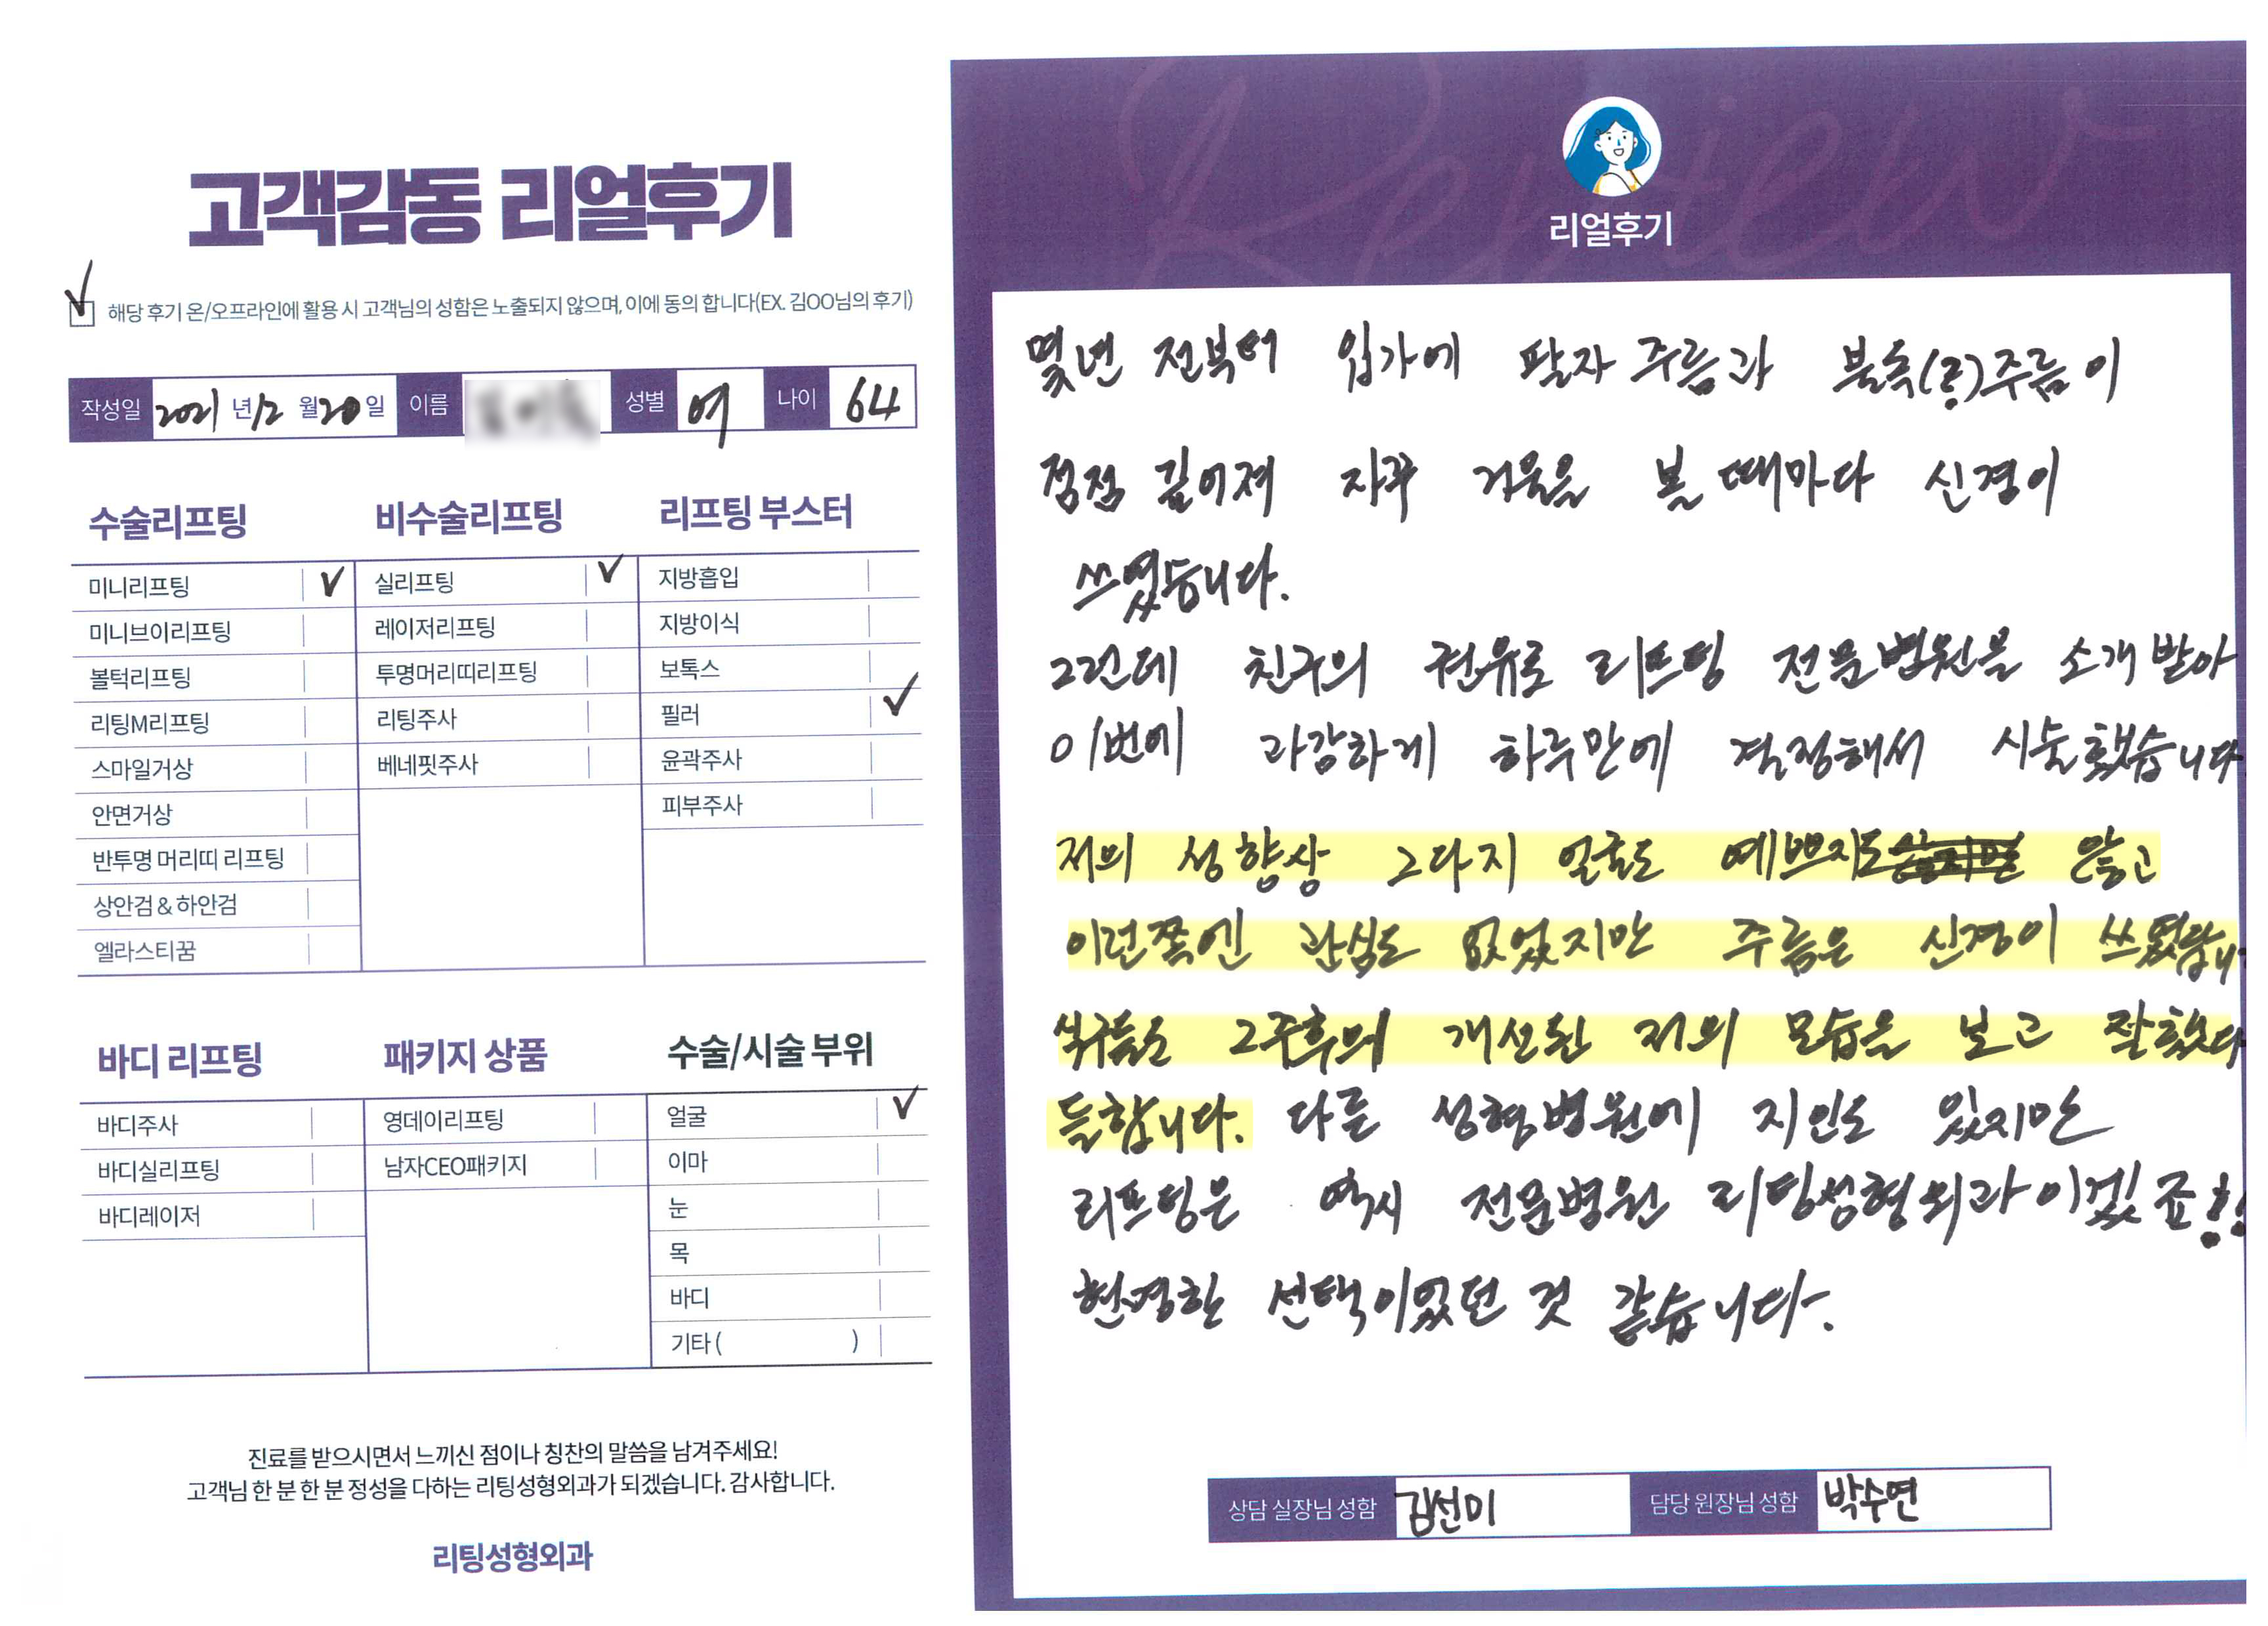 고객감동 리얼후기
해당 후기 온/오프라인에 활용 시 고객님의 성함은 노출되지 않으며, 이에 동의 합니다(EX. 김OO님의 후기)
작성일 2021 년 12 월 20 일 이름 성별 여 나이 64
수술리프팅
미니리프팅
미니브이리프팅
볼턱리프팅
리팅M리프팅
스마일거상
안면거상
반투명 머리띠 리프팅
상안검 & 하안검
엘라스티꿈
비수술리프팅
실리프팅
레이저리프팅
투명머리띠리프팅
리팅주사
베네핏주사
리프팅 부스터
지방흡입
지방이식
보톡스
필러
윤곽주사
피부주사
바디 리프팅
바디주사
바디실리프팅
바디레이저
패키지 상품
영데이리프팅
남자CEO패키지
수술/시술 부위
얼굴
이마
눈
목
바디
기타 ( )
진료를 받으시면서 느끼신 점이나 칭찬의 말씀을 남겨주세요!
고객님 한 분 한 분 정성을 다하는 리팅성형외과가 되겠습니다. 감사합니다.
리팅성형외과
Review
리얼후기
몇년 전부터 입가에 팔자 주름과 불독(?)주름이
점점 깊어져 자꾸 거울을 볼 때마다 신경이
쓰였습니다.
그런데 친구의 권유로 리프팅 전문병원을 소개받아
이번에 과감하게 하루만에 결정해서 시술했습니다
저의 성향상 그다지 얼굴도 예쁘지도 않고
이런쪽엔 관심도 없었지만 주름은 신경이 쓰였답니
식구들도 2주후의 개선된 저의 모습을 보고 잘했다
들합니다. 다른 성형병원에 지인도 있지만
리프팅은 역시 전문병원 리팅성형외과이겠죠!!
현명한 선택이었던 것 같습니다.
상담 실장님 성함 김선미 담당 원장님 성함 박수연